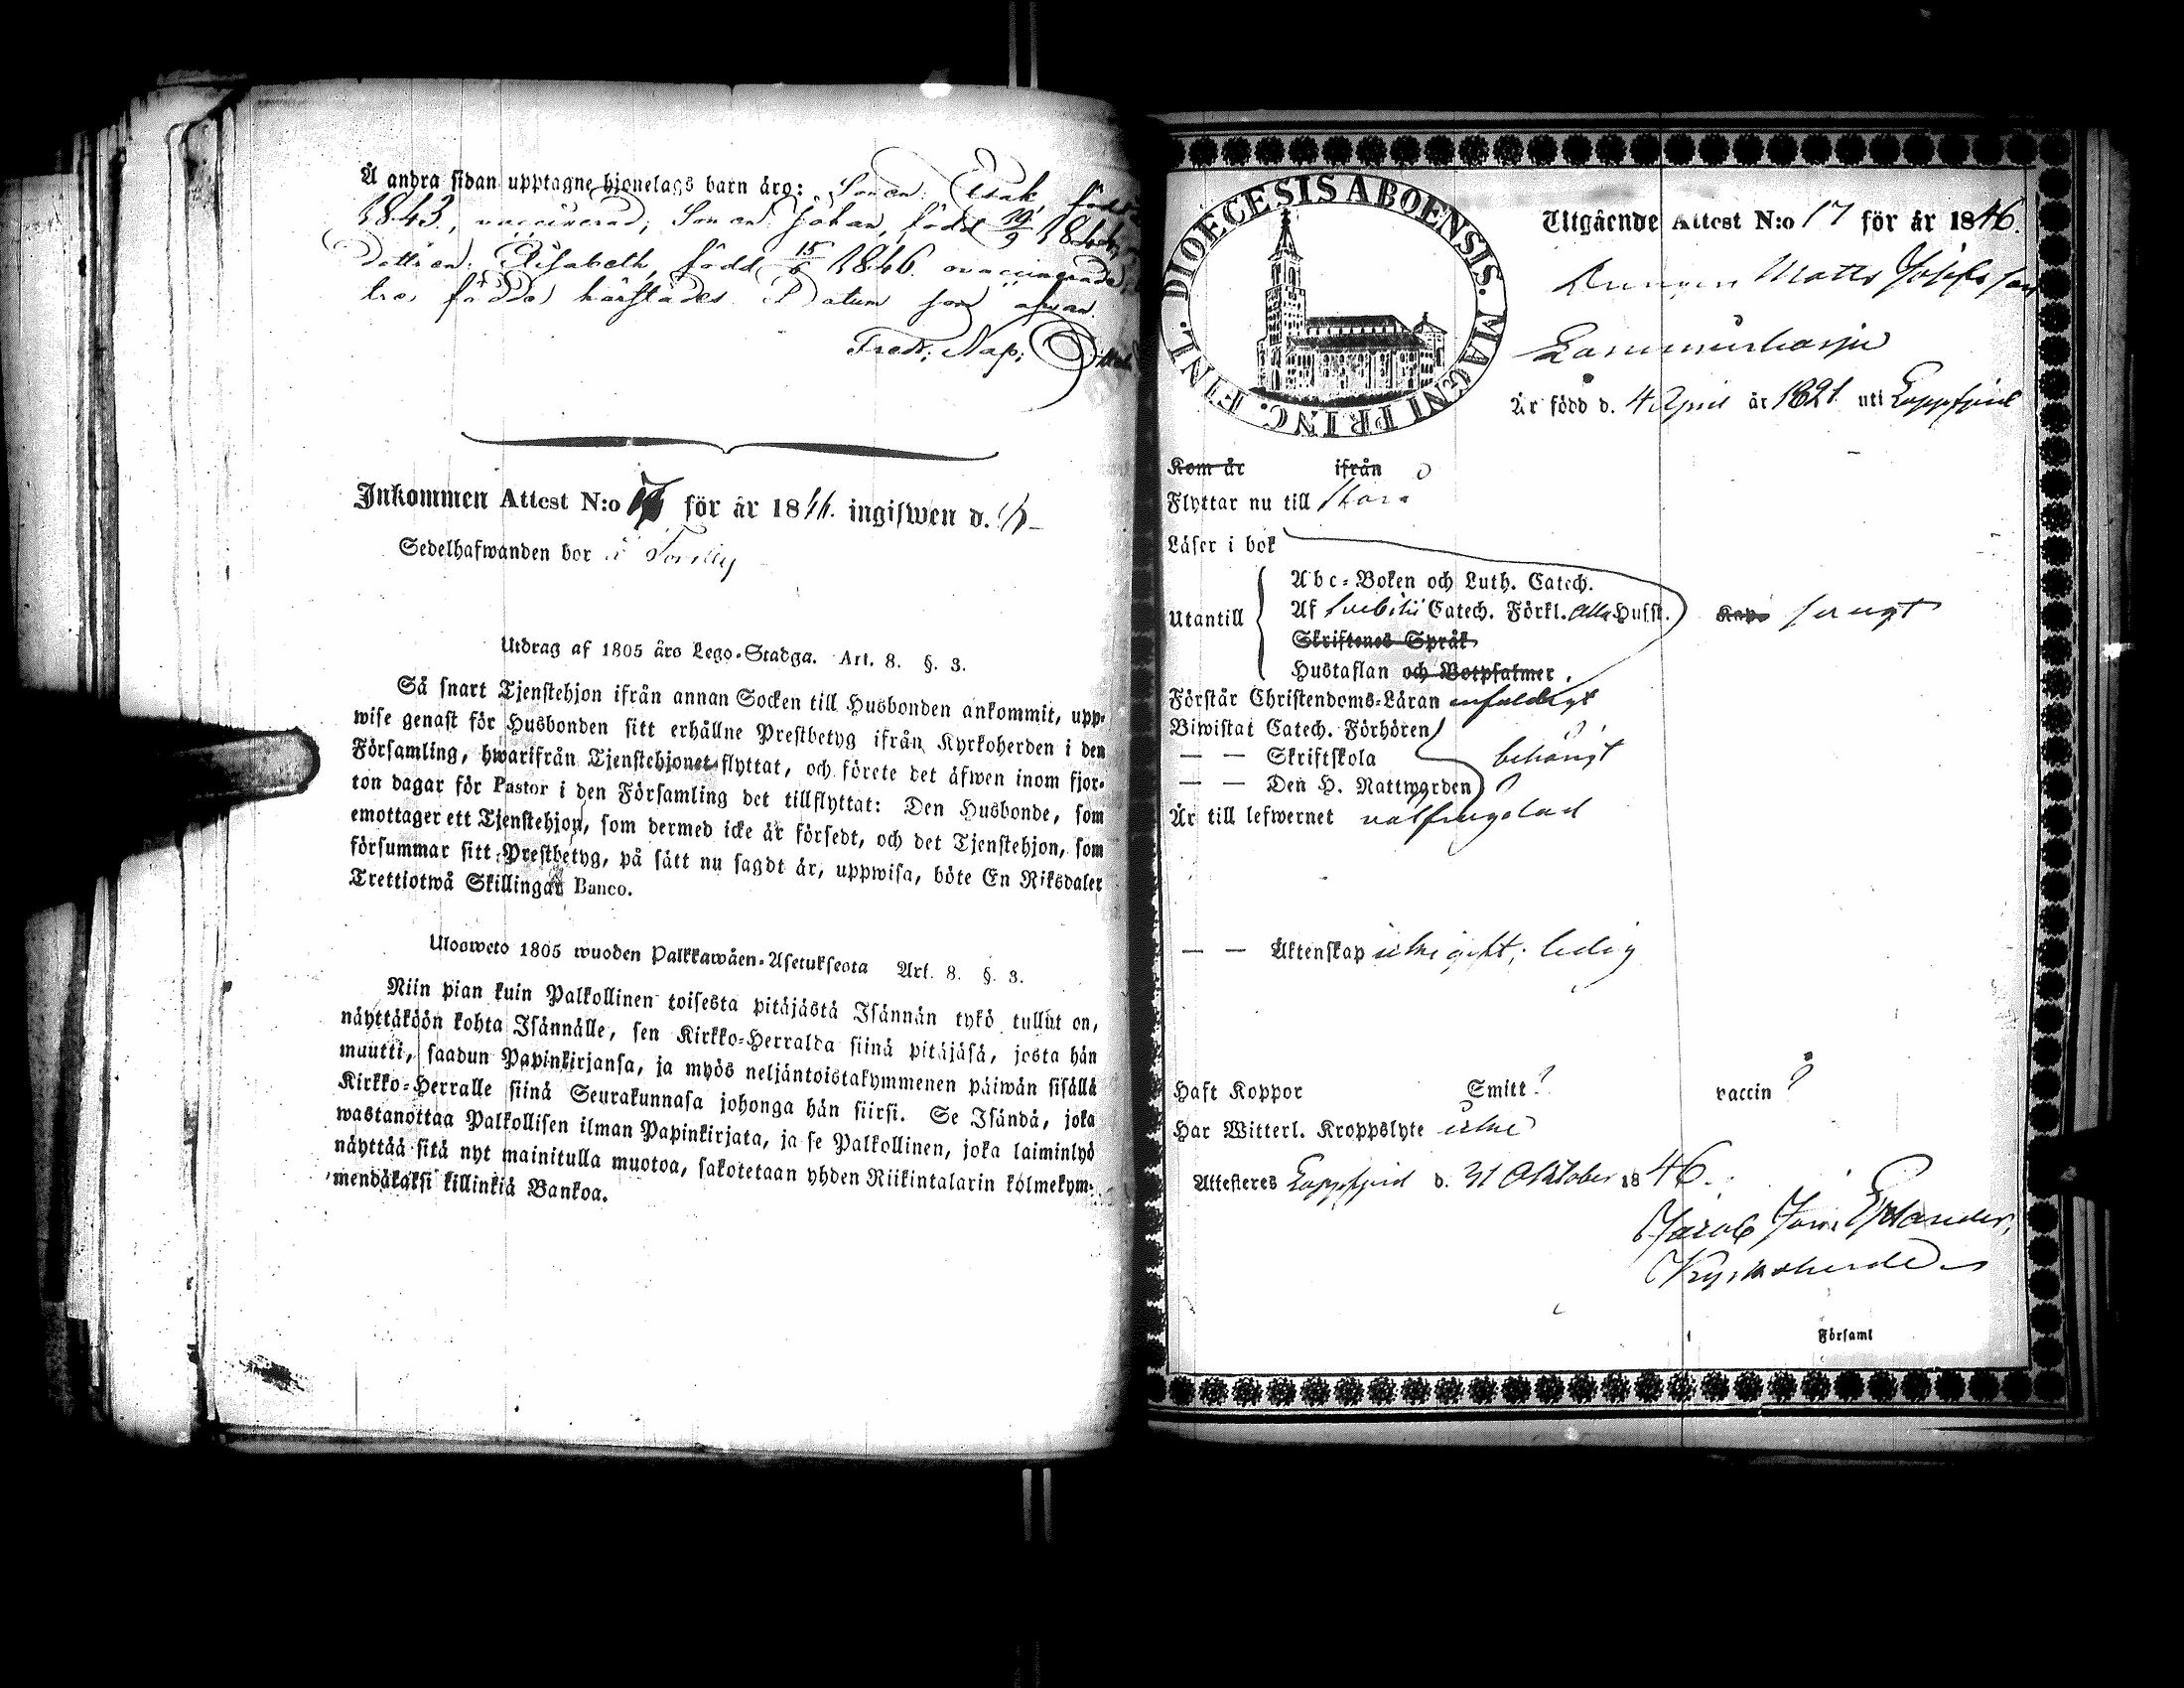 Å andra sidan upptagne hjonelags barn äro: Sonen Isak, född
1843, vaccinerad, Sonen Johan, född 1844,
dottren Elisabeth, född 15/6 1846. ovaccinerade,
födda härstädes Datum som ofvan.
Fredr. Nap.
Inkommen Attest N:o för år 1846. ingifwen d.
Sedelhafwanden bor å
Utdrag af 1805 års Lego-Stadga. Art. 8. §. 3.
Så snart Tjenstehjon ifrån annan Socken till Husbonden ankommit, upp-
wise genast för Husbonden sitt erhållne Prestbetyg ifrån Kyrkoherden i den
Församling, hwarifrån Tjenstehjonet flyttat, och förete det äfwen inom fjor-
ton dagar för Pastor i den Församling det tillflyttat: Den Husbonde, som
emottager ett Tjenstehjon, som dermed icke är försedt, och det Tjenstehjon, som
försummar sitt Prestbetyg, på sätt nu sagdt är, uppwisa, böte En Riksdaler
Trettiotwå Skillingar Banco.
Ulosweto 1805 wuoden Palkkawäen-Asetuksesta Art. 8. §. 3.
Niin pian kuin Palkollinen toisesta pitäjästä Isännän tykö tullut on,
näyttäköön kohta Isännälle, sen Kirkko-Herralda siinä pitäjäsä, josta hän
muutti, saadun Papinkirjansa, ja myös neljäntoistakymmenen päiwän sisällä
Kirkko-Herralle siinä Seurakunnasa johonga hän siirsi. Se Isändä, joka
wastanottaa Palkollisen ilman Papinkirjata, ja se Palkollinen, joka laiminlyö
näyttää sitä nyt mainitulla muotoa, sakotetaan yhden Riikintalarin kolmekym-
mendäkaksi killinkiä Bankoa.
DIOECESIS ABOENSIS. MAGNI PRINC. FINL.
Utgående Attest N:o 17 för år 1846.
Drängen Matts Josefsson
Är född d. 4 April år 1821 uti Lappfjärd
Kom år ifrån
Flyttar nu till
Läser i bok
Utantill
Abc-Boken och Luth. Catech.
Af Svebilii Catech. Förkl. alla Husst.
Kap. svagt
Skriftenes Språk
Hustaflan och Botpsalmer.
Förstår Christendoms-Läran enfaldigt
Biwistat Catech. Förhören
— — Skriftskola behörigt
— — Den H. Nattwarden
Är till lefwernet välfrägdad
— — Äktenskap icke gift; ledig
Haft Koppor Smitt? vaccin?
Har Witterl. Kroppslyte icke
Attesteres Lappfjärd d. 31 Oktober 1846.
Jacob Jon. Estlander,
Kyrkoherde
Församl